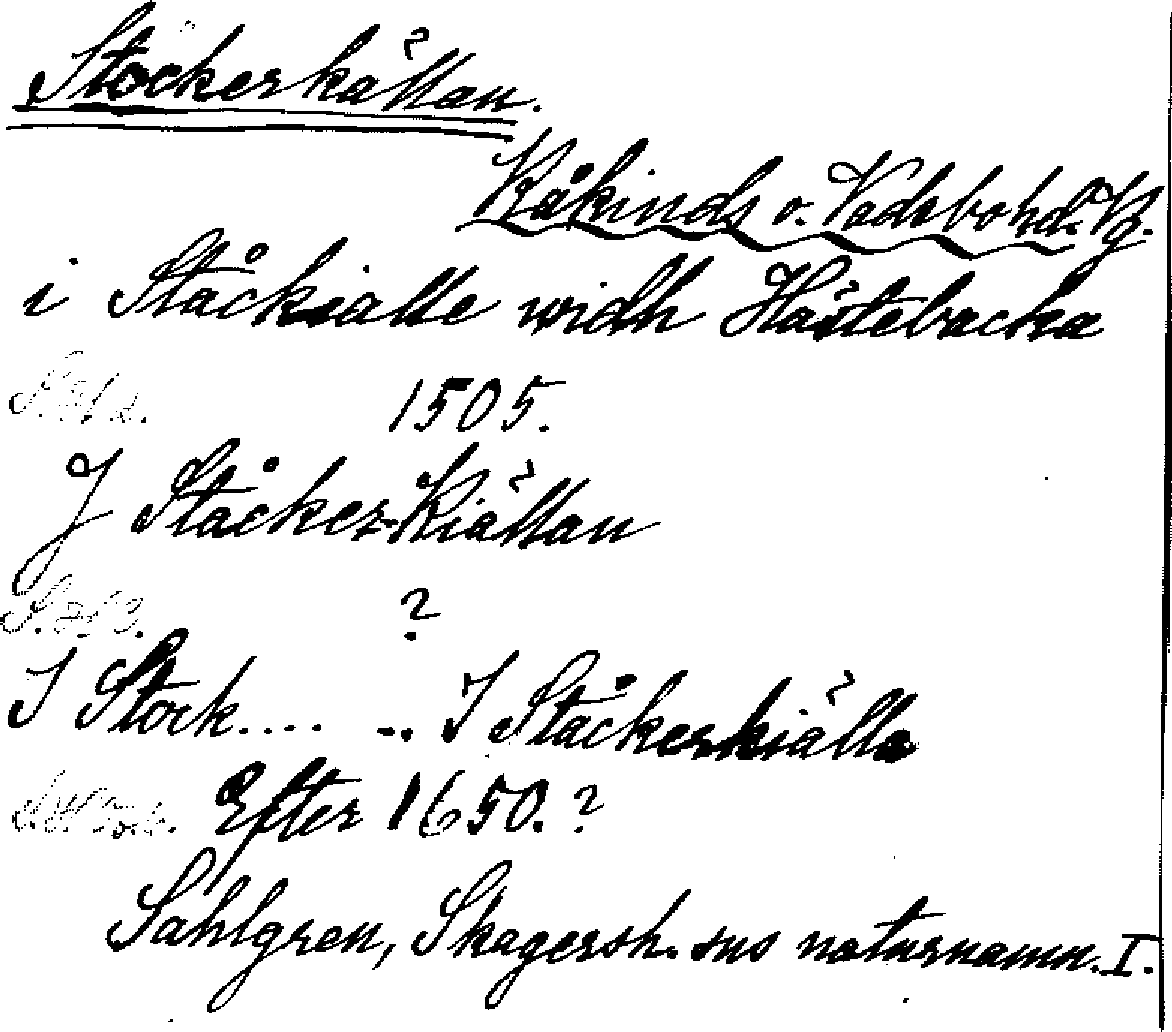 Stockerkällan. ?
Kåkinds o. Vadsbohd. Vg.
i Ståckialle widh Hästebacka
1505.
J Ståcker-Kiällan
?
I Stock.... .. I Ståckerkiälla
Efter 1650.?
Sahlgren, Skagersh. sns naturnamn. I.